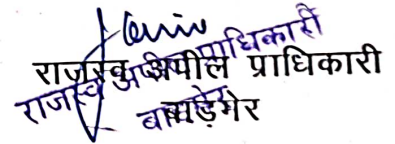 राजस्व अपील प्राधिकारी
राजस्व अपील प्राधिकारी
बाड़मेर
बाड़मेर